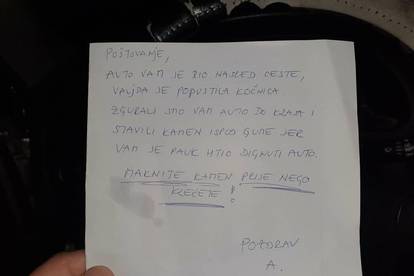 POŠTOVANJE,
AUTO VAM JE BIO NASRED CESTE,
VALJDA SE POPUSTILA KOČNICA
ZGURALI SMO VAM AUTO DO KRAJA I
STAVILI KAMEN ISPOD GUME JER
VAM JE PAUK HTIO DIGNUTI AUTO.
MAKNITE KAMEN PRIJE NEGO
KRENETE!
POZDRAV
A.